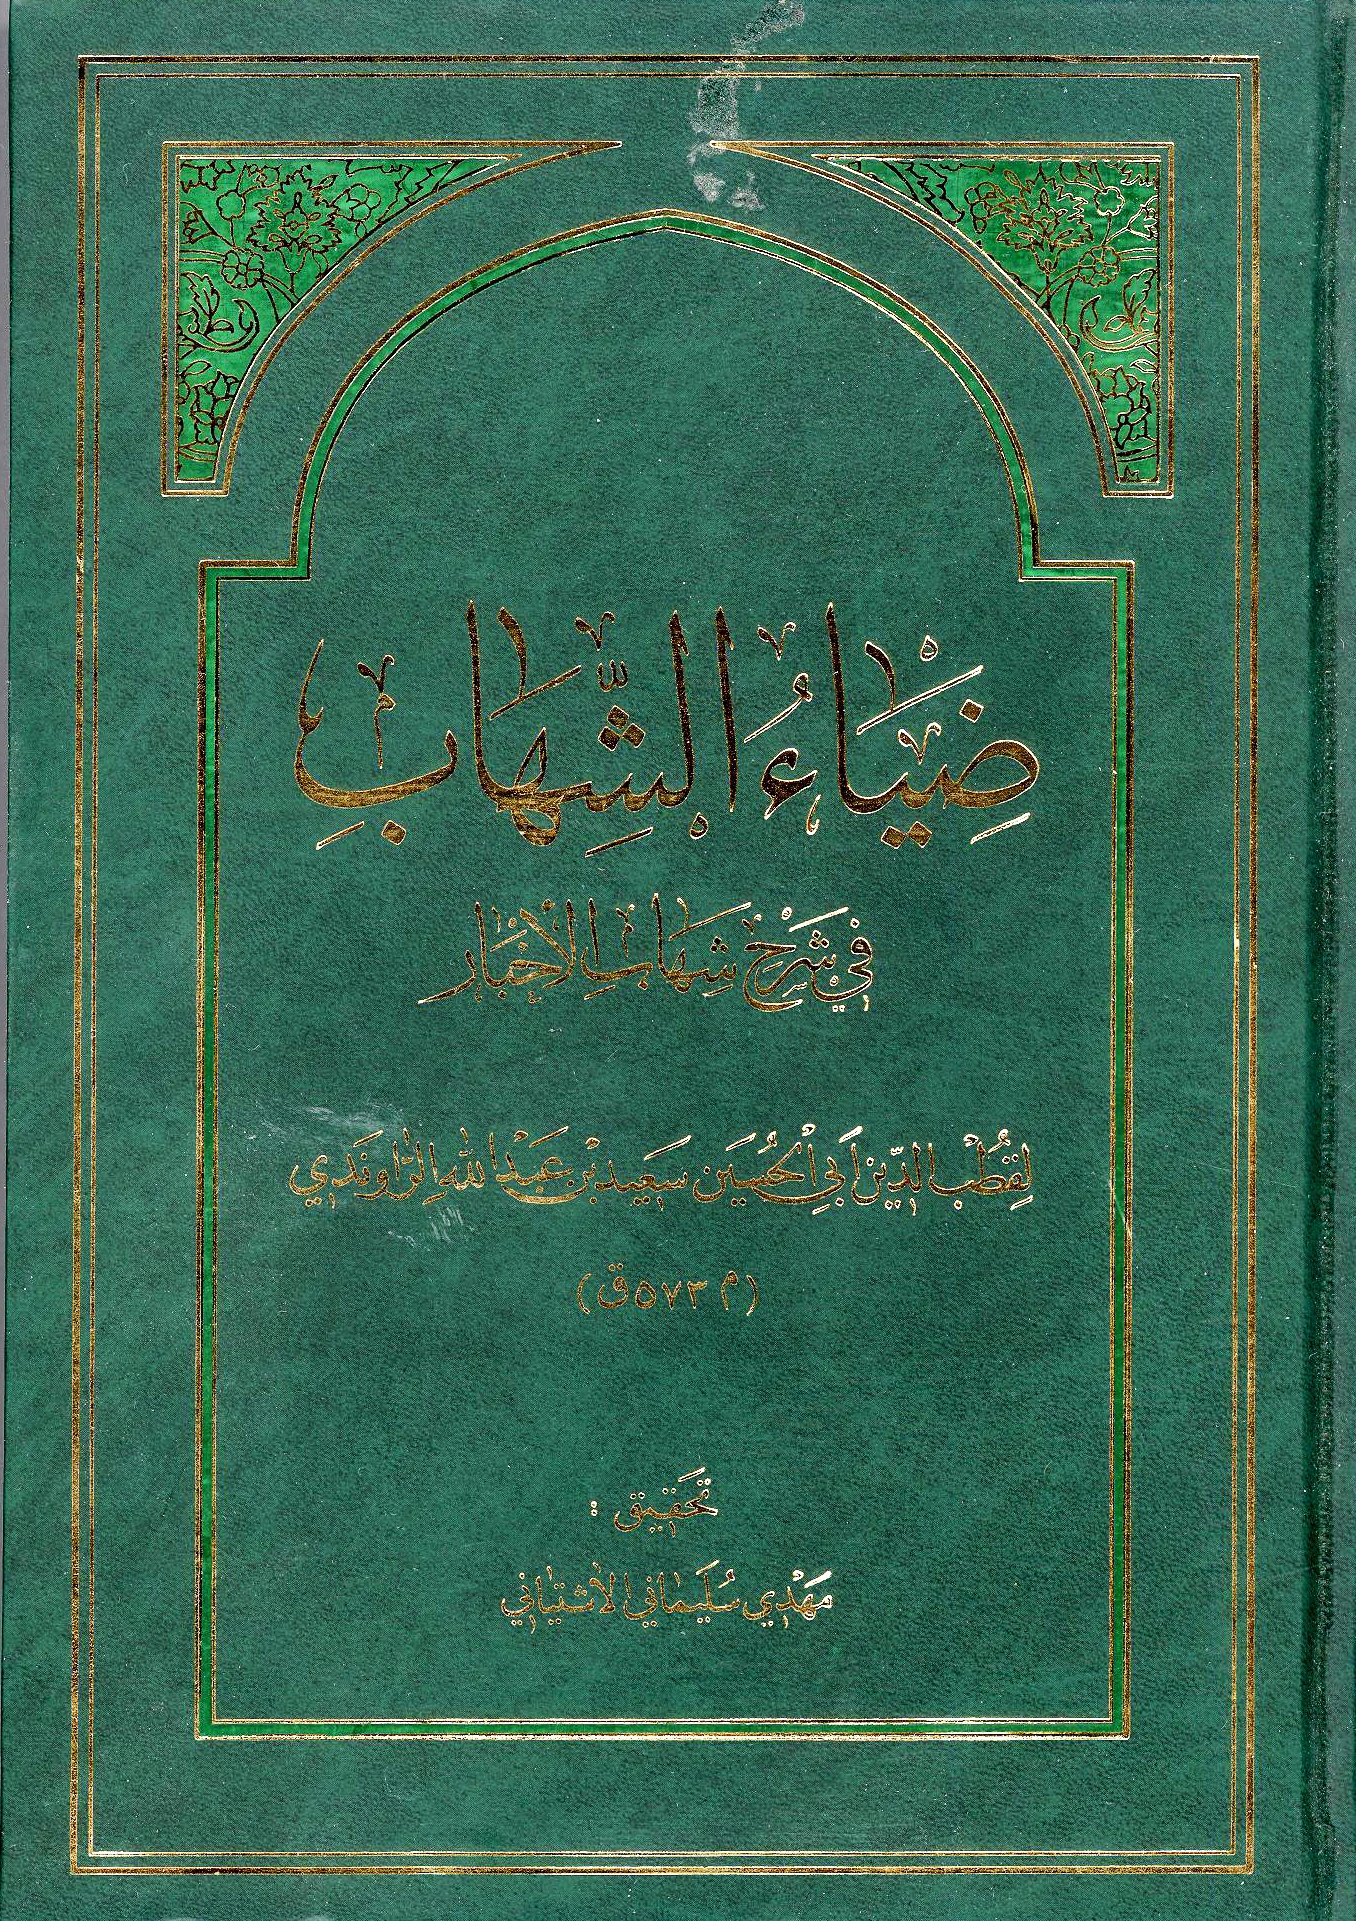 ضِيَاءُ الشِّهَابِ
فِي شَرْحِ شِهَابِ الْأَخْبَارِ
لِقُطْبِ الدِّينِ أَبِي الْحُسَيْنِ سَعِيدِ بْنِ عَبْدِ اللهِ الرَّاوَنْدِيِ
(م ٥٧٣ ق)
تحقيق :
مَهْدِي سُلَيْمَانِي الآشْتِيَانِي